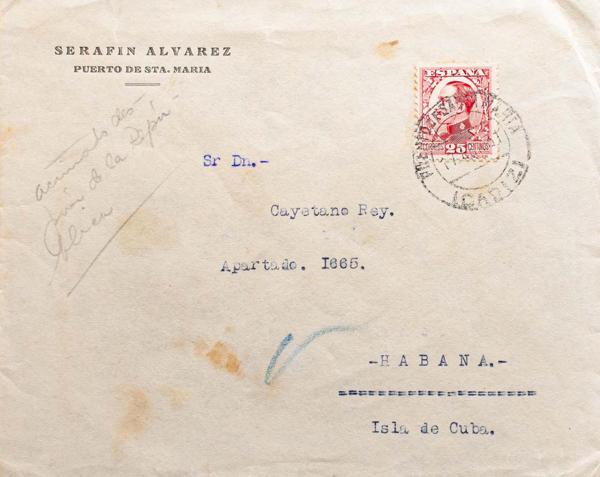 SERAFIN ALVAREZ
PUERTO DE STA. MARIA
ESPAÑA
CORREOS 25 CENTIMOS
PUERTO DE SANTA MARIA
(CADIZ)
de la
Sr Dn.-
Cayetano Rey.
Apartado. I665.
-HABANA.-
Isla de Cuba.